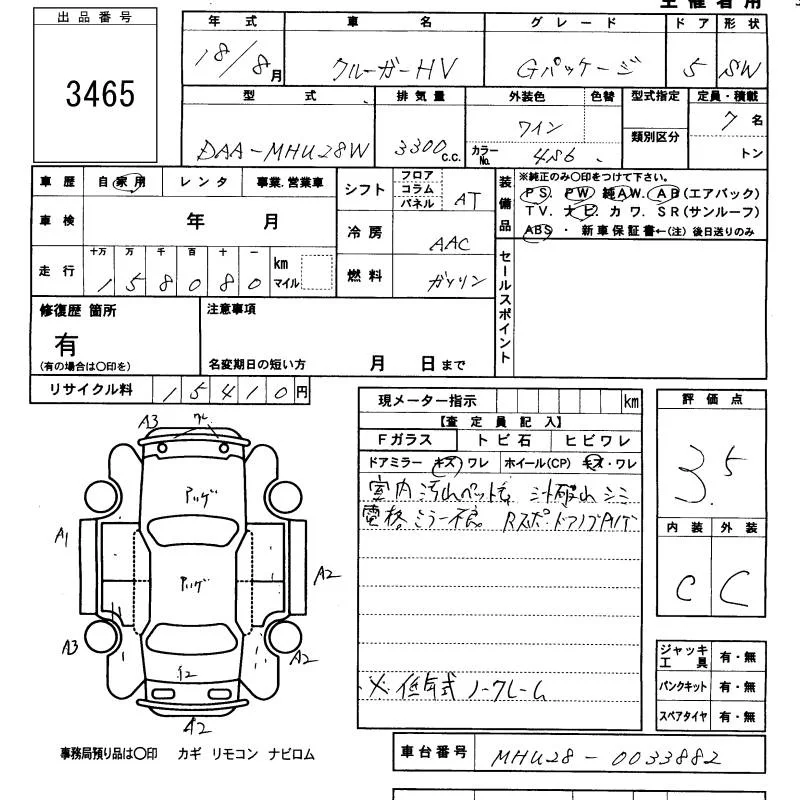 主催者用
出品番号
3465
年式 車名 グレード ドア 形状
18/8月 クルーガーHV Gパッケージ 5 SW
型式 排気量 外装色 色替 型式指定 定員・積載
DAA-MHU28W 3300c.c. ワイン カラーNo. 4S6 類別区分 7名 トン
車歴 自家用 レンタ 事業.営業車
車検 年 月
走行 十万 万 千 百 十 一
158080 km マイル
シフト フロア コラム パネル AT
冷房 AAC
燃料 ガソリン
装備品 ※純正のみ○印をつけて下さい。
PS. PW. 純AW. AB(エアバック)
TV. ナビ. カワ. SR(サンルーフ)
ABS ・ 新車保証書←(注)後日送りのみ
セールスポイント
修復歴 箇所
有
(有の場合は○印を)
注意事項
名変期日の短い方 月 日まで
リサイクル料 15410円
現メーター指示 km
【査定員記入】
Fガラス トビ石 ヒビワレ
ドアミラー キズ ワレ ホイール(CP) キズ・ワレ
室内汚れ シミ
電格ミラー不良
※低年式 ノークレーム
評価点
3.5
内装 外装
C C
ジャッキ工具 有・無
パンクキット 有・無
スペアタイヤ 有・無
A3
アッゲ
A1
アッゲ
A2
A3
A2
A2
事務局預り品は○印 カギ リモコン ナビロム
車台番号 MHU28-0033882